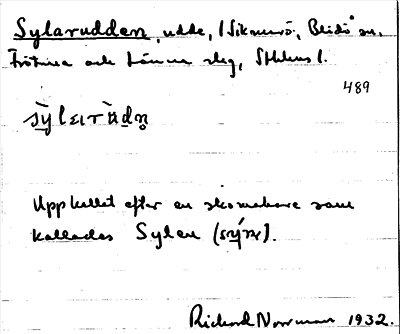 Sylarudden, udde, i Sikmarö, Blidö sn.
Frötuna och Länna slg, Sthlms l.
489
Uppkallat efter en skomakare som
kallades Sylen
Richard Norrman 1932.